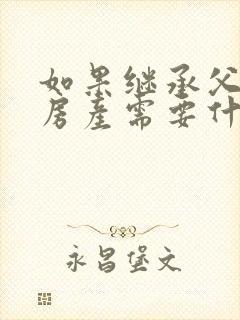 如果继承父
房产需要什
永昌堡文